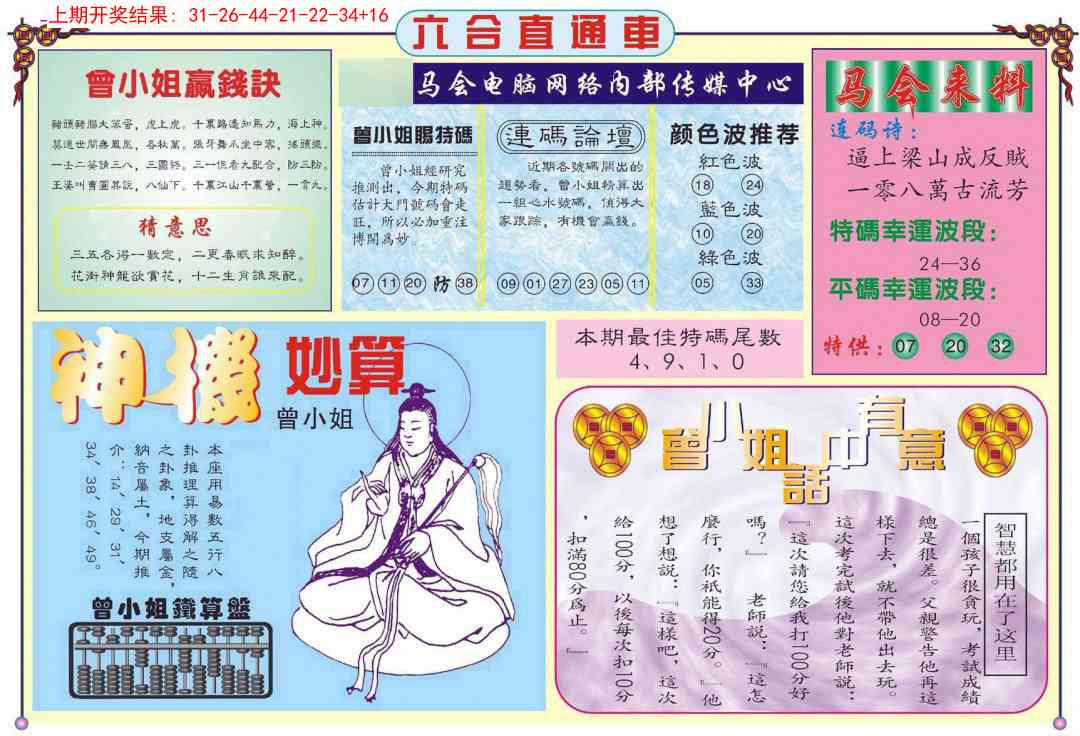 上期开奖结果: 31-26-44-21-22-34+16
六合直通車
曾小姐贏錢訣
猪頭豬腦大笨當，虎上虎。千裏路遙知馬力，海上神。
王婆叫賣圖其說，八仙下。千裏江山千裏營，一貪九。
猜意思
三五各得一數定，二更春眠求知醉。
花街神龍欲賞花，十二生肖誰來配。
马会电脑网络内部传媒中心
曾小姐賜特碼
曾小姐經研究
推測出，今期特碼
估計大門號碼會走
旺，所以必加重注
博開爲妙。
07 11 20 防 38
連碼論壇
近期各號碼開出的
趨勢看，曾小姐精算出
一組心水號碼，值得大
家跟踪，有機會贏錢。
09 01 27 23 05 11
颜色波推荐
紅色波
18 24
藍色波
10 20
綠色波
05 33
马会来料
连码诗：
逼上梁山成反賊
一零八萬古流芳
特碼幸運波段：
24—36
平碼幸運波段：
08—20
特供： 07 20 32
神機妙算
曾小姐
本座用易數五行八
卦推理算得解之隨
之卦象，地支屬金，
納音屬土，今期推
介：14、29、31、
34、38、46、49。
曾小姐鐵算盤
本期最佳特碼尾數
4、9、1、0
曾小姐話中有意
智慧都用在了这里
一個孩子很貪玩，考試成績
總是很差。父親警告他再這
樣下去，就不帶他出去玩。
這次考完試後他對老師説：
『這次請您給我打100分好
嗎？』 老師説：『這怎
麼行，你衹能得20分。』他
想了想説：『這樣吧，這次
給100分，以後每次扣10分
，扣滿80分爲止。』